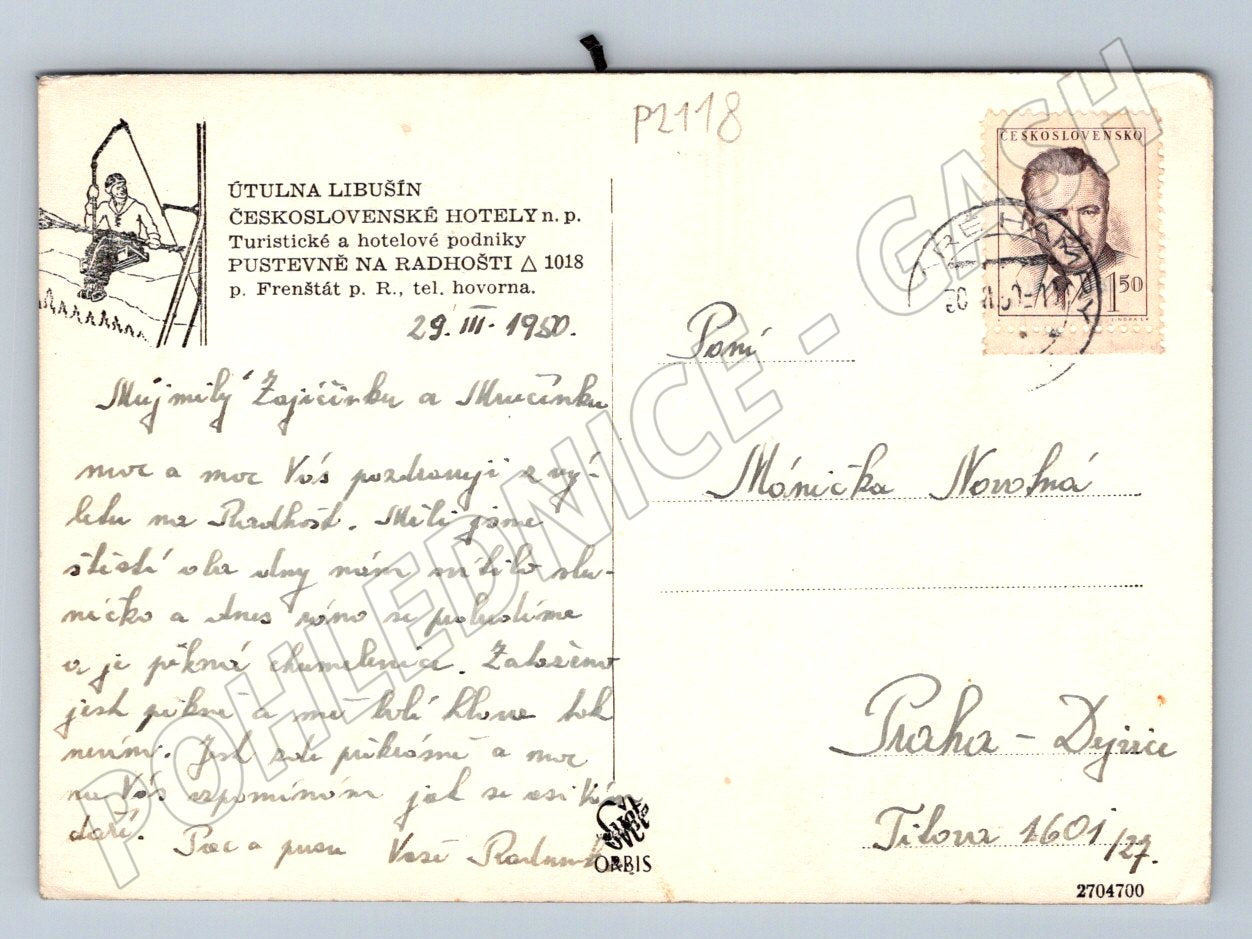 P2118
ČESKOSLOVENSKO
1 50
ÚTULNA LIBUŠÍN
ČESKOSLOVENSKÉ HOTELY n. p.
Turistické a hotelové podniky
PUSTEVNĚ NA RADHOŠTI △ 1018
p. Frenštát p. R., tel. hovorna.
29. III. 1950.
Můj milý Zajíčínku a Mucínku
moc a moc Vás pozdravuji z vý-
letu na Radhošť. Měli jsme
štěstí dva dny nám svítilo slu-
níčko a dnes ráno se probudíme
a je pěkná chumelenice. Zataženo
jest pěkně a mě bolí hlava tak
nevím. Jest zde překrásně a moc
na Vás vzpomínám jak se asi Vám
daří. Pac a pusu Vaše
Paní
Mánička Novotná
Praha - Dejvice
Titova 1601/27.
ORBIS
2704700
POHLEDNICE - GASH